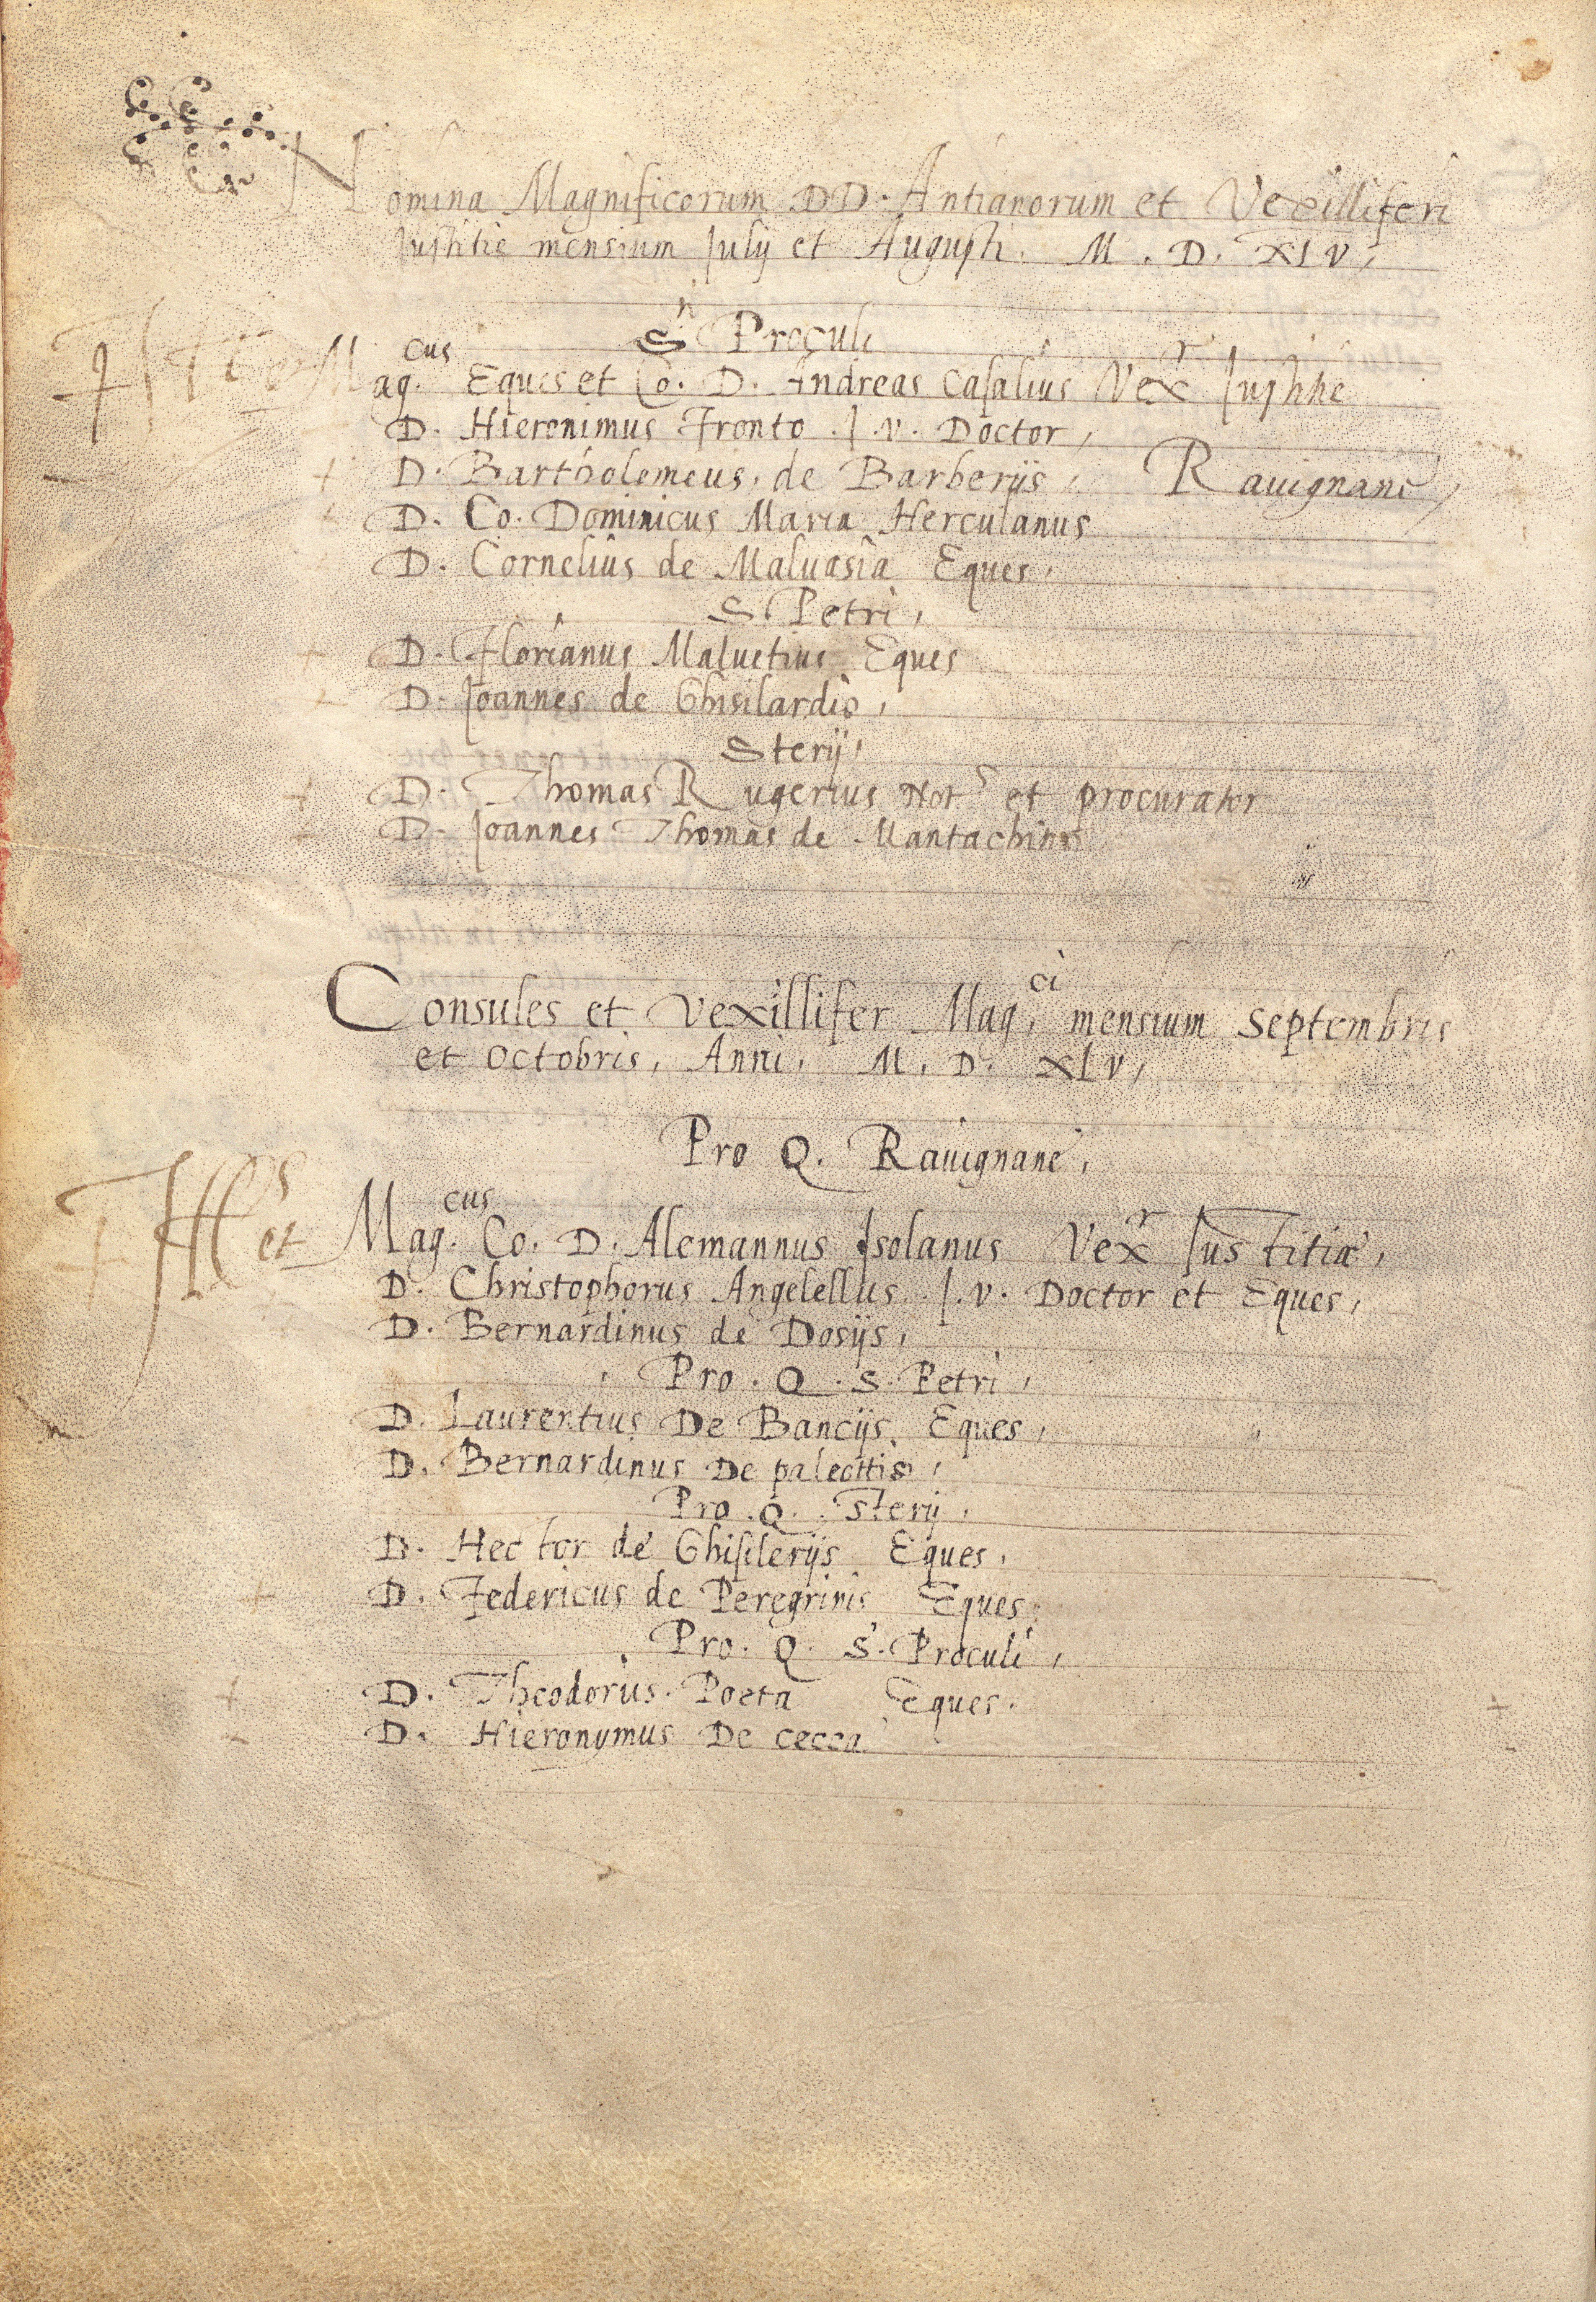 Nomina Magnificorum DD. Antianorum et Vexilliferi
Iustitie mensium Iulij et Augusti. M. D. XLV,
S.n Proculi
Mag.cus Eques et Co. D. Andreas Casalius Vex.r Iustitie
D. Hieronimus Fronto. I. V. Doctor,
D. Bartholemeus. de Barberijs, Rauignane,
D. Co. Dominicus Maria Herculanus
D. Cornelius de Maluasia Eques,
S. Petri,
D. Florianus Maluetius Eques
D. Joannes de Ghisilardis,
Sterij,
D. Thomas Rugerius Not.s et procurator
D. Joannes Thomas de Mantachinis
Consules et Vexillifer Mag.ci mensium Septembris
et Octobris, Anni, M. D. XLV,
Pro Q. Rauignane,
et Mag.cus Co. D. Alemannus Isolanus Vex.r Iustitiæ,
D. Christophorus Angelellus. I. V. Doctor et Eques,
D. Bernardinus de Dosijs,
Pro. Q. S. Petri,
D. Laurentius De Bancijs. Eques,
D. Bernardinus De paleottis,
Pro. Q. Sterij,
D. Hector de Ghisilerijs Eques,
D. Federicus de Peregrinis Eques
Pro. Q. S. Proculi,
D. Theodorus. Poeta Eques.
D. Hieronymus De cecca